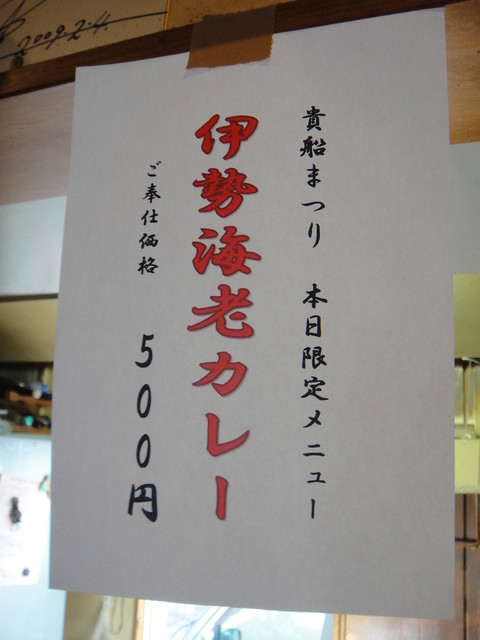 2009.2.4.
貴船まつり 本日限定メニュー
伊勢海老カレー
ご奉仕価格 500円